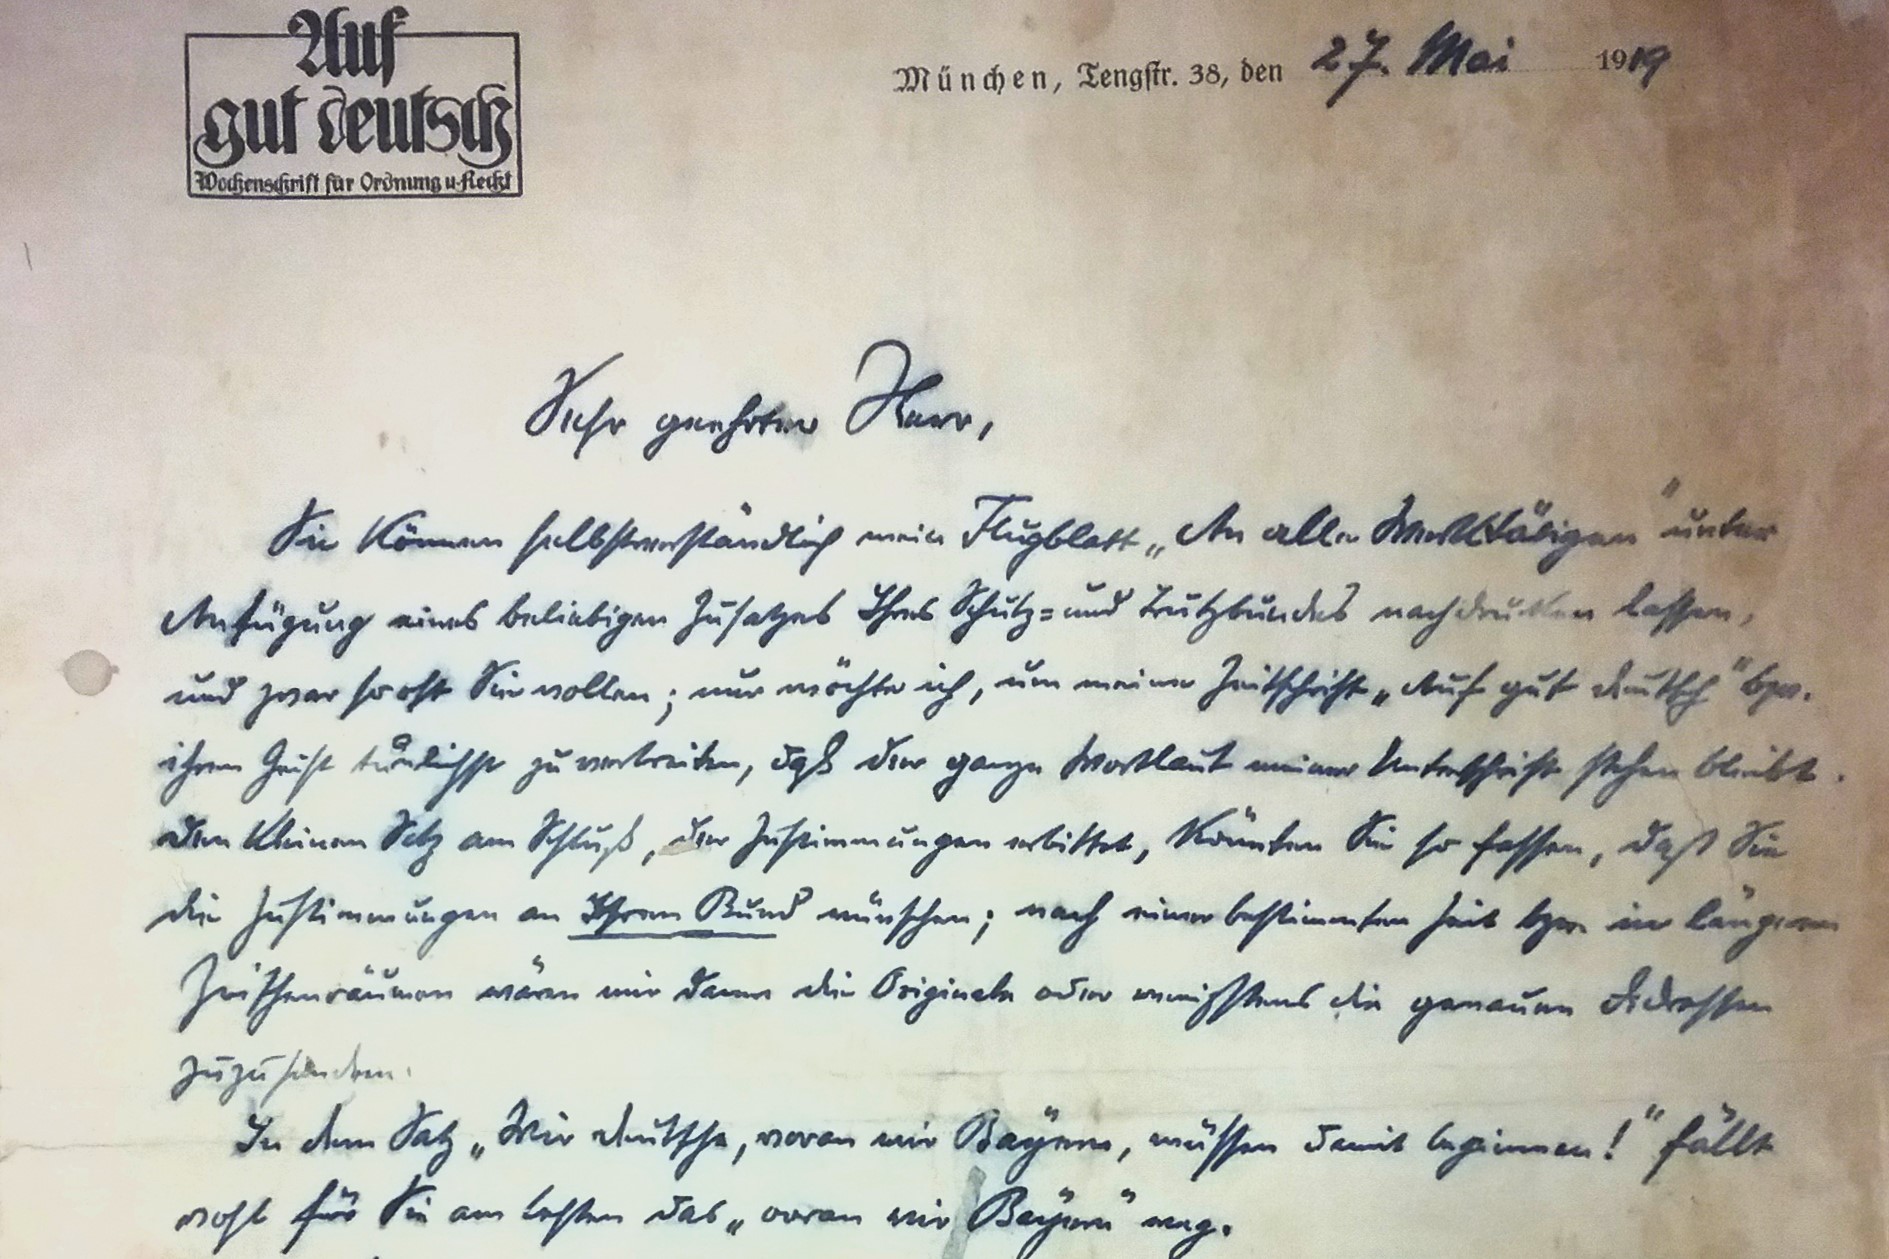 Auf
gut deutsch
Wochenschrift für Ordnung u. Recht
München, Tengstr. 38, den 27. Mai 1919
Sehr geehrter Herr,
Sie können selbstverständlich mein Flugblatt „An alle Werktätigen" unter
Anfügung eines beliebigen Zusatzes Ihres Schutz= und Trutzbundes nachdrucken lassen,
und zwar so oft Sie wollen; nur möchte ich, um meine Zeitschrift „Auf gut deutsch" bzw.
ihren Geist tunlichst zu verbreiten, daß der ganze Wortlaut meiner Unterschrift stehen bleibt.
Den kleinen Satz am Schluß, der Zustimmungen erbittet, könnten Sie so fassen, daß Sie
die Zustimmungen an Ihren Bund wünschen; nach einer bestimmten Zeit bzw. in längeren
Zeitenräumen wären mir dann die Originale oder wenigstens die genauen Adressen
zuzusenden.
In dem Satz „Wir deutsche, voran wir Bayern, müssen damit beginnen!" fällt
wohl für Sie am besten das „voran wir Bayern" weg.